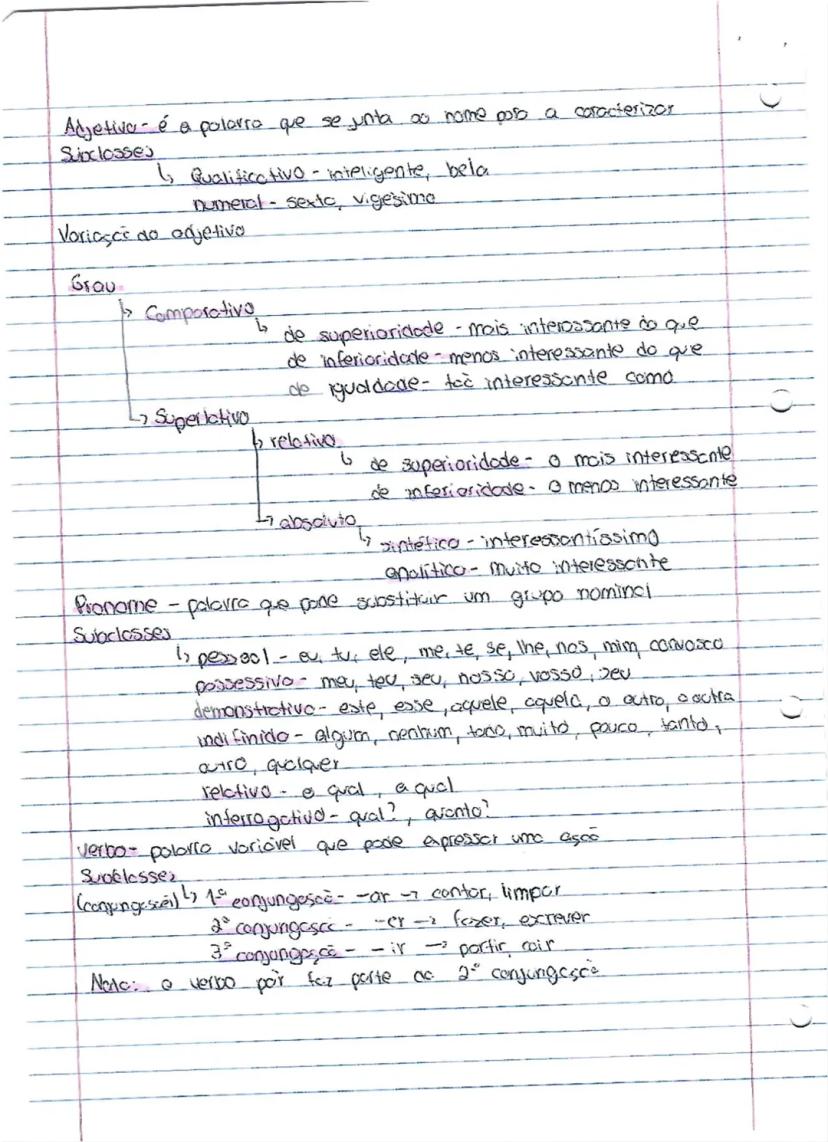 Adjetivo - é a palavra que se junta ao nome para a caracterizar
Subclasses
↳ Qualificativo - inteligente, bela
numeral - sexto, vigésimo
Variação do adjetivo
Grau
↳ Comparativo
↳ de superioridade - mais interessante do que
de inferioridade - menos interessante do que
de igualdade - tão interessante como
↳ Superlativo
↳ relativo
↳ de superioridade - o mais interessante
de inferioridade - o menos interessante
↳ absoluto
↳ sintético - interessantíssimo
analítico - muito interessante
Pronome - palavra que pode substituir um grupo nominal
Subclasses
↳ pessoal - eu, tu, ele, me, te, se, lhe, nos, mim, convosco
possessivo - meu, teu, seu, nosso, vosso, seu
demonstrativo - este, esse, aquele, aquela, o outro, a outra
indifinido - algum, nenhum, todo, muito, pouco, tanto,
outro, qualquer
relativo - o qual, a qual
interrogativo - qual?, quanto?
Verbo - palavra variável que pode expressar uma ação
Subclasses
(conjungação) ↳ 1ª conjungação - -ar → contar, limpar
2ª conjungação - -er → fazer, escrever
3ª conjungação - -ir → partir, cair
Nota: o verbo pôr faz parte da 2ª conjungação